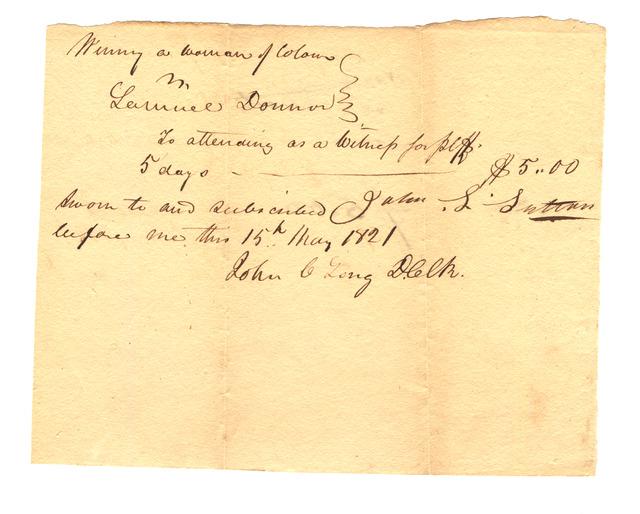 Winny a woman of Colour
vs
Lemuel Donnor
To attending as a Witness for plff.
5 days $5..00
Sworn to and subscribed John L. Sutton
before me this 15th May 1821
John C Long D.Clk.